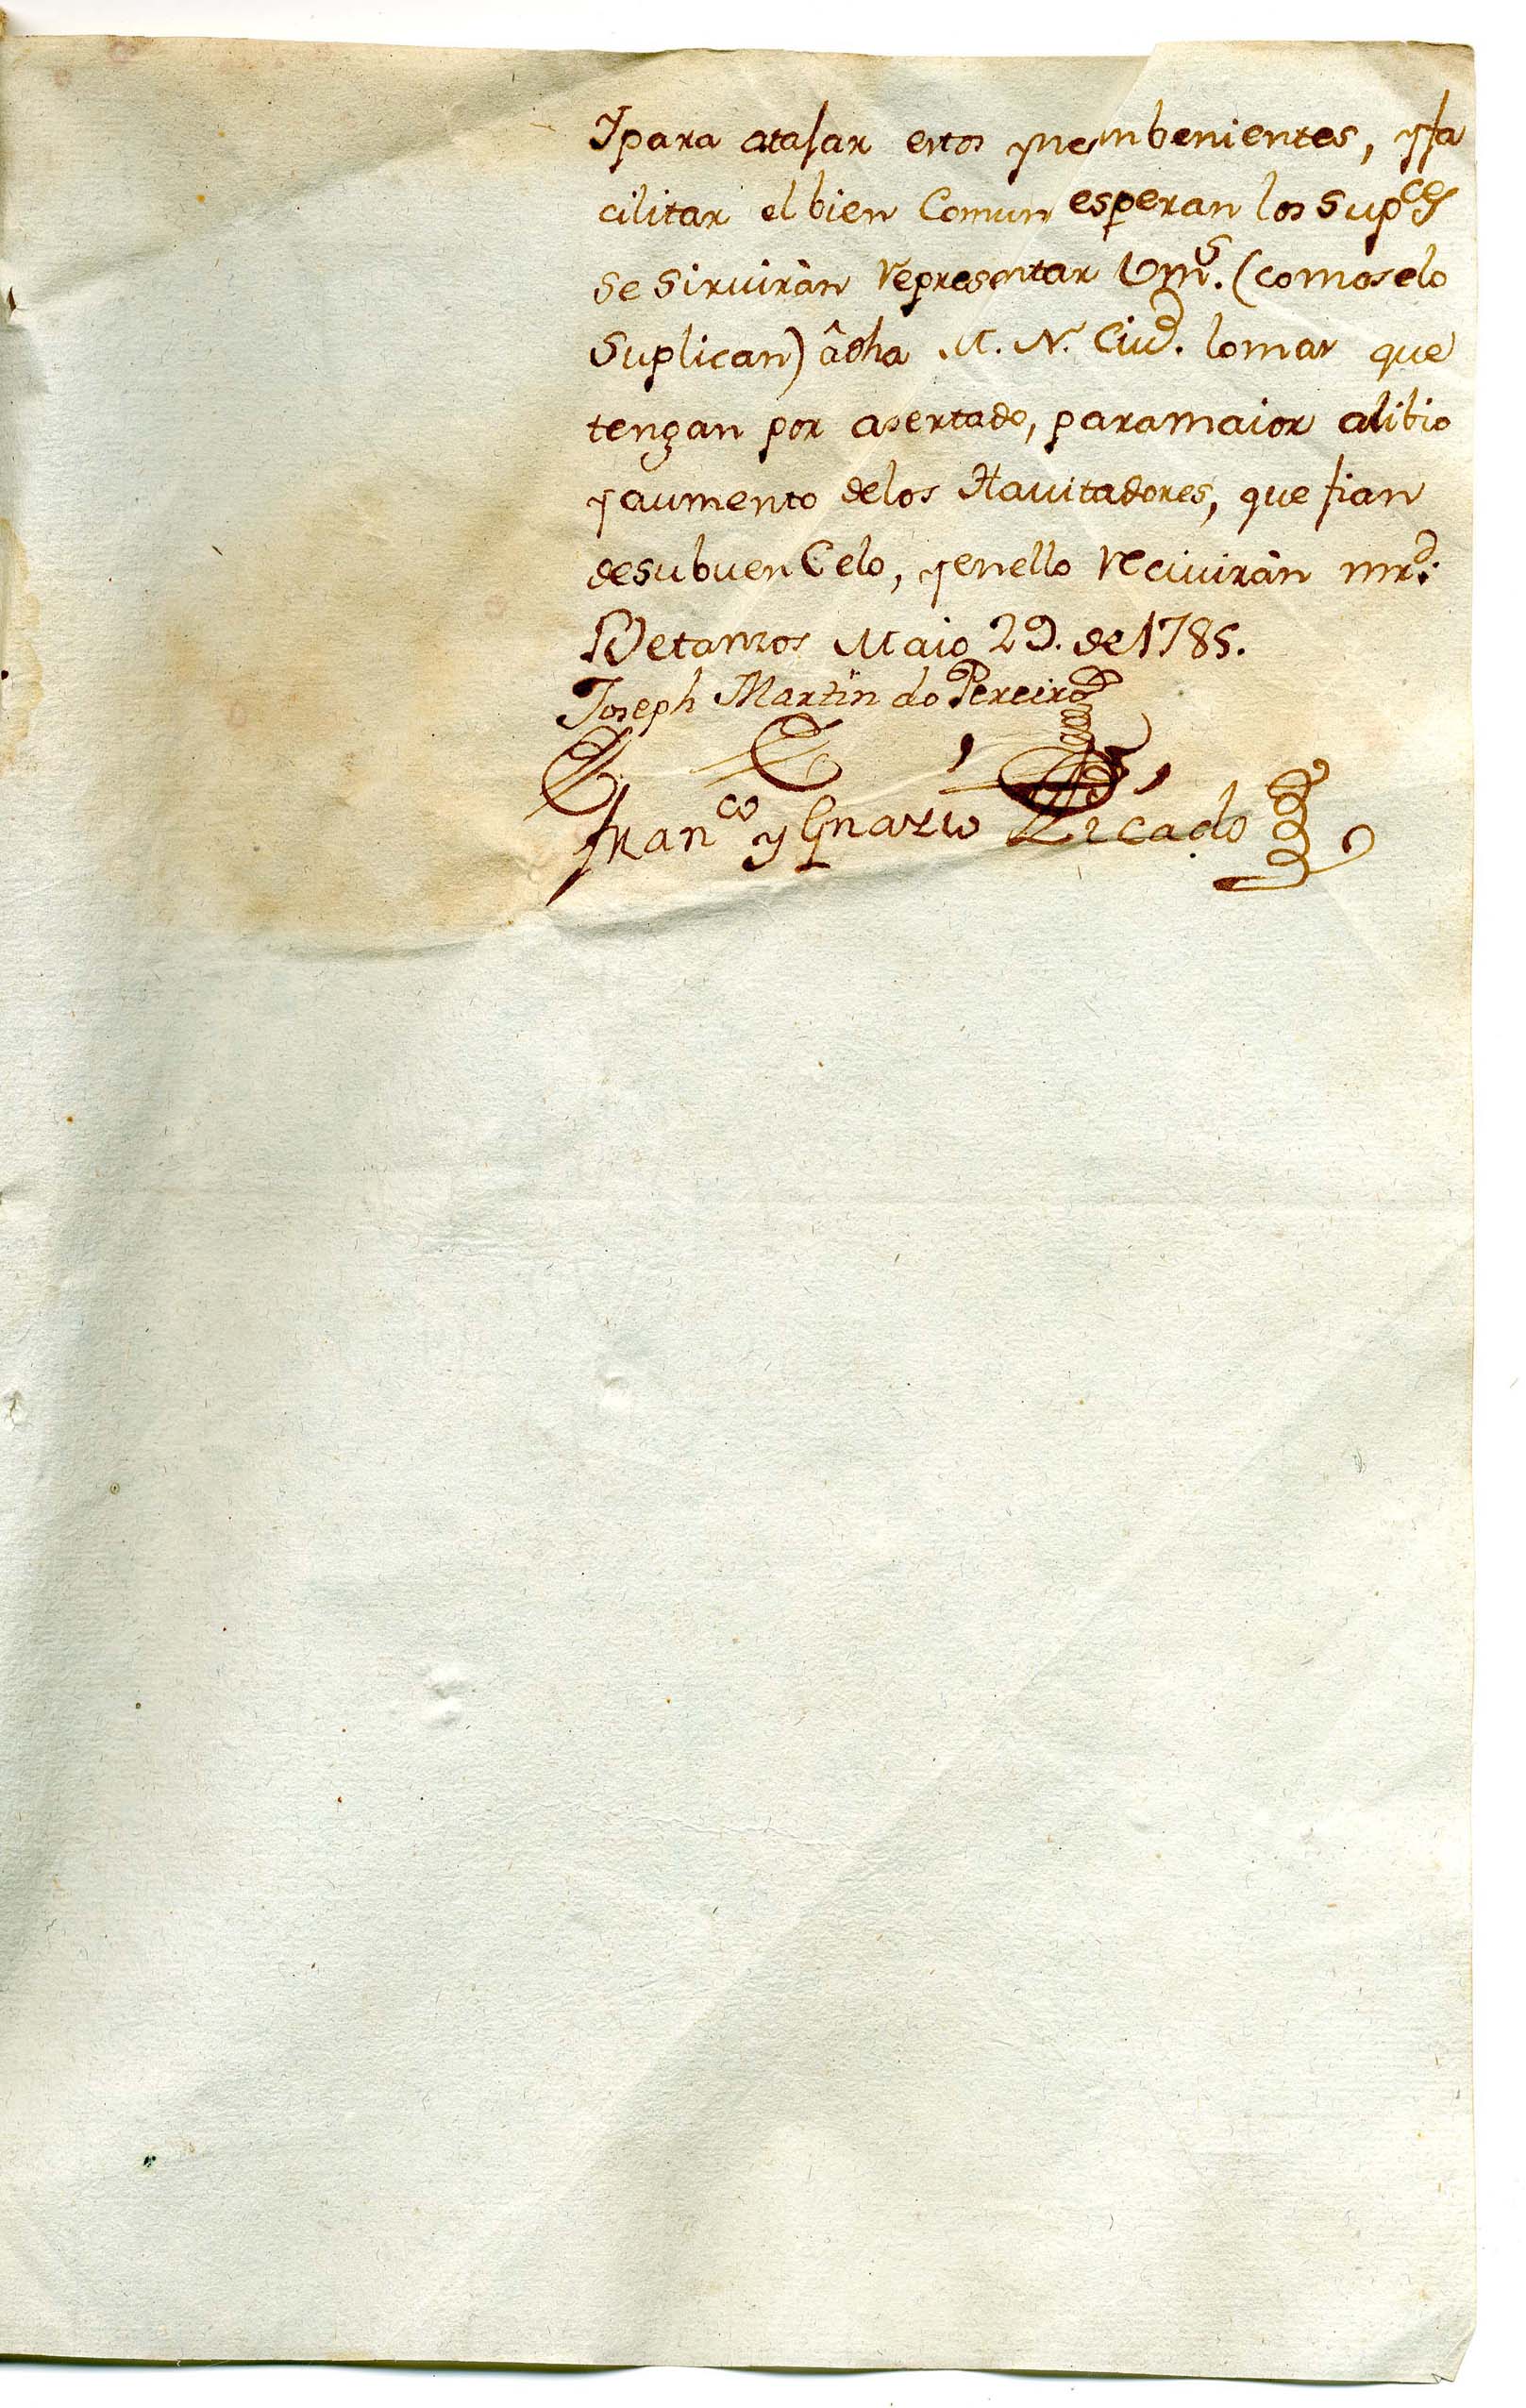 Ypara atajar estos ynconbenientes, yfa
cilitar el bien Comun esperan los Supces
se Serviràn representar Vms. (como se lo
Suplican) â dha M. N. Ciud. lo mas que
tengan por asertado, para maior alibio
y aumento de los Havitadores, que fian
de su buen Celo, y en ello reciviràn mrd.
Betanzos Maio 29. de 1785.
Joseph Martin do Pereiro
Franco ygnazio Picado